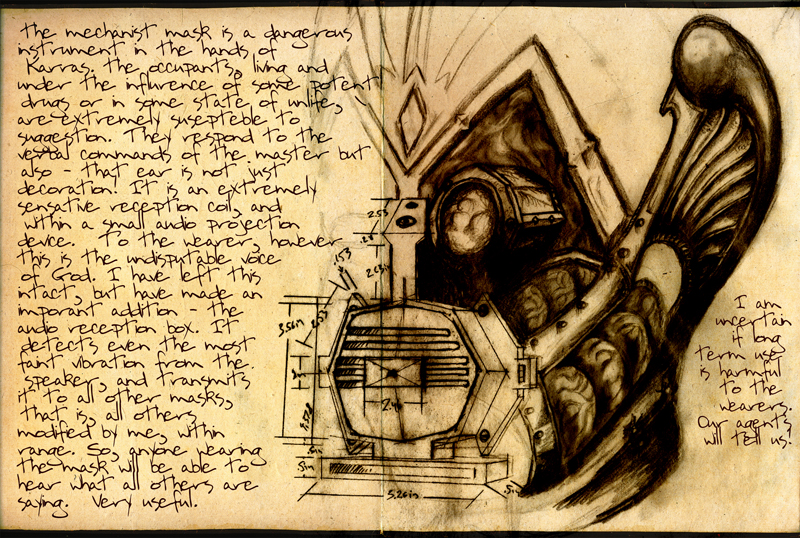 the mechanist mask is a dangerous
instrument in the hands of
Karras. the occupants, living and
under the influrence of some potent
drugs or in some state of unlife,
are extremely susepteble to
suggestion. They respond to the
verbal commands of the master but
also - that ear is not just
decoration! It is an extremely
sensative reception coil, and
within a small audio projection
device. To the wearer, however
this is the undisputable voice
of God. I have left this
intact, but have made an
imporant addition - the
audio reception box. It
detects even the most
faint vibration from the
speaker, and transmits
it to all other masks,
that is, all others
modified by me, within
range. So, anyone wearing
the mask will be able to
hear what all others are
saying. Very useful.
2.53
.153
2.03in
3.56in
5.26in
.5in
I am
uncertain
if long
term use
is harmful
to the
wearers.
Our agents
will tell us!